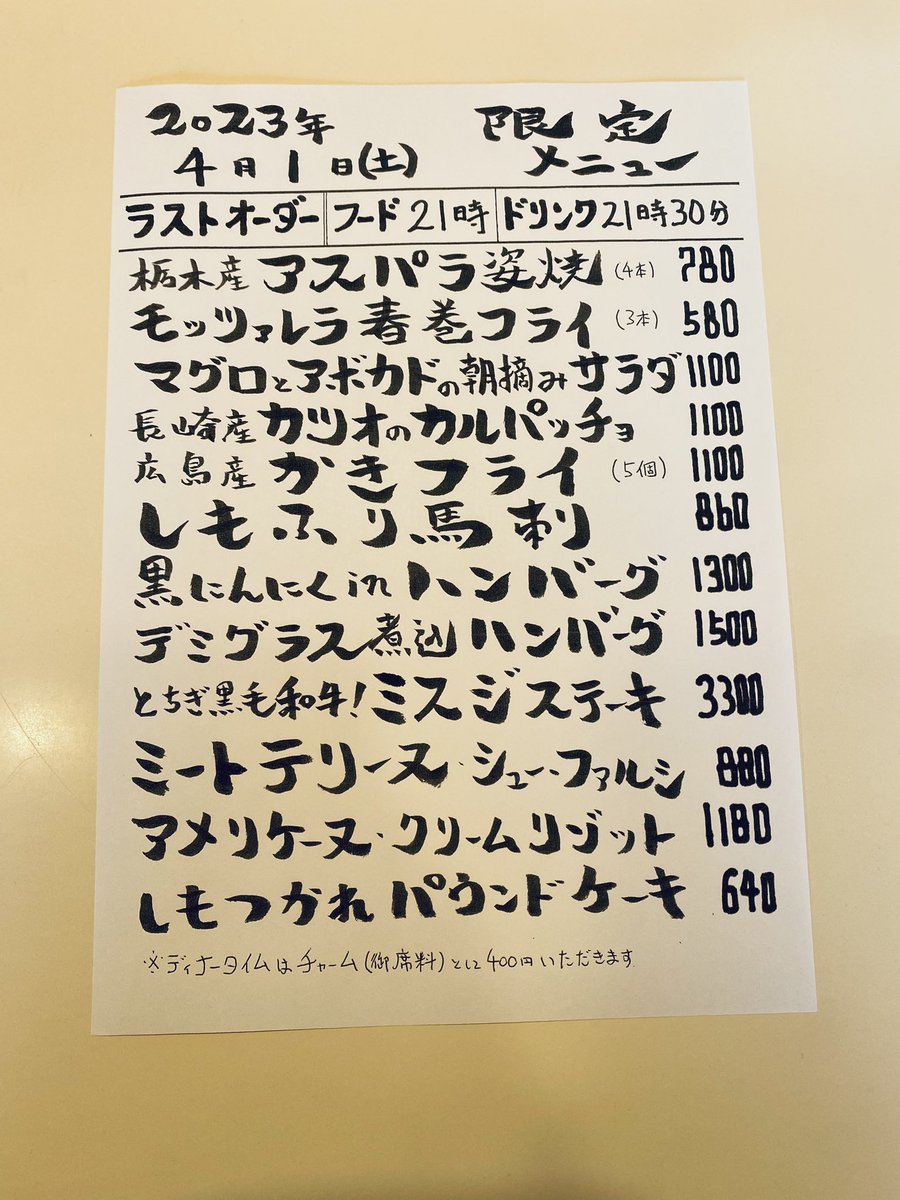 2023年 限定
4月1日(土) メニュー
ラストオーダー フード21時 ドリンク21時30分
栃木産 アスパラ姿焼 (4本) 780
モッツァレラ春巻フライ (3本) 580
マグロとアボカドの朝摘みサラダ 1100
長崎産 カツオのカルパッチョ 1100
広島産 かきフライ (5個) 1100
しもふり馬刺 860
黒にんにくinハンバーグ 1300
デミグラス煮込ハンバーグ 1500
とちぎ黒毛和牛!ミスジステーキ 3300
ミートテリーヌ・シュー・ファルシ 880
アメリケーヌ・クリームリゾット 1180
しもつかれパウンドケーキ 640
※ディナータイムはチャーム(御席料)として400円いただきます